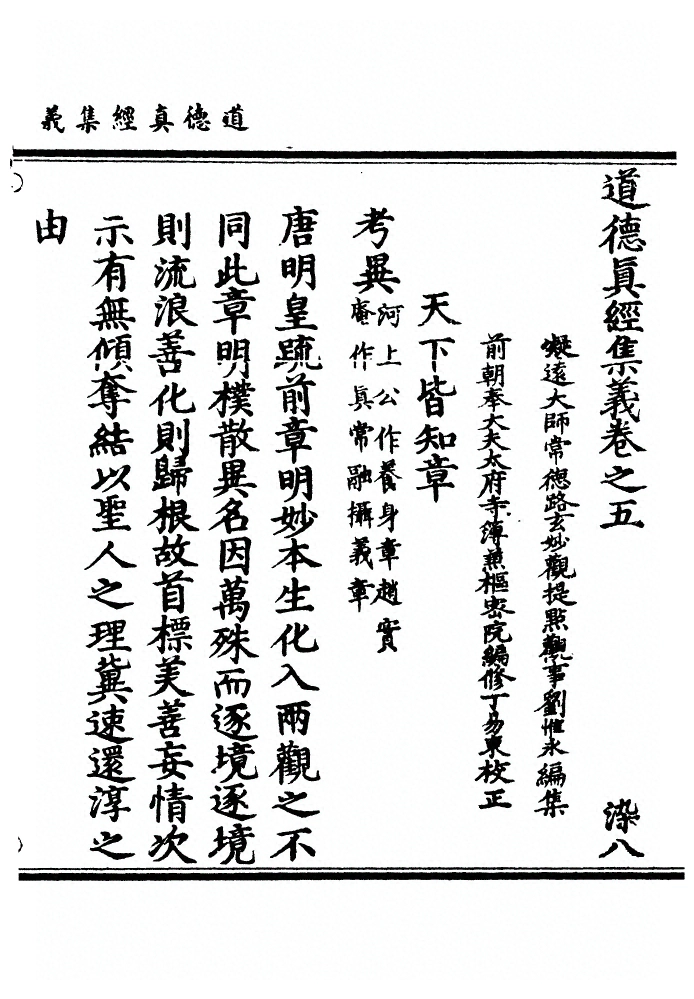 道德真經集義
道德眞經集義卷之五
染八
凝遠大師常德路玄妙觀提點觀事劉惟永編集
前朝奉大夫太府寺簿兼樞密院編修丁易東校正
天下皆知章
考異河上公作養身章趙實
庵作眞常融攝義章
唐明皇疏前章明妙本生化入兩觀之不
同此章明樸散異名因萬殊而逐境逐境
則流浪善化則歸根故首標美善妄情次
示有無傾奪結以聖人之理冀速還淳之
由